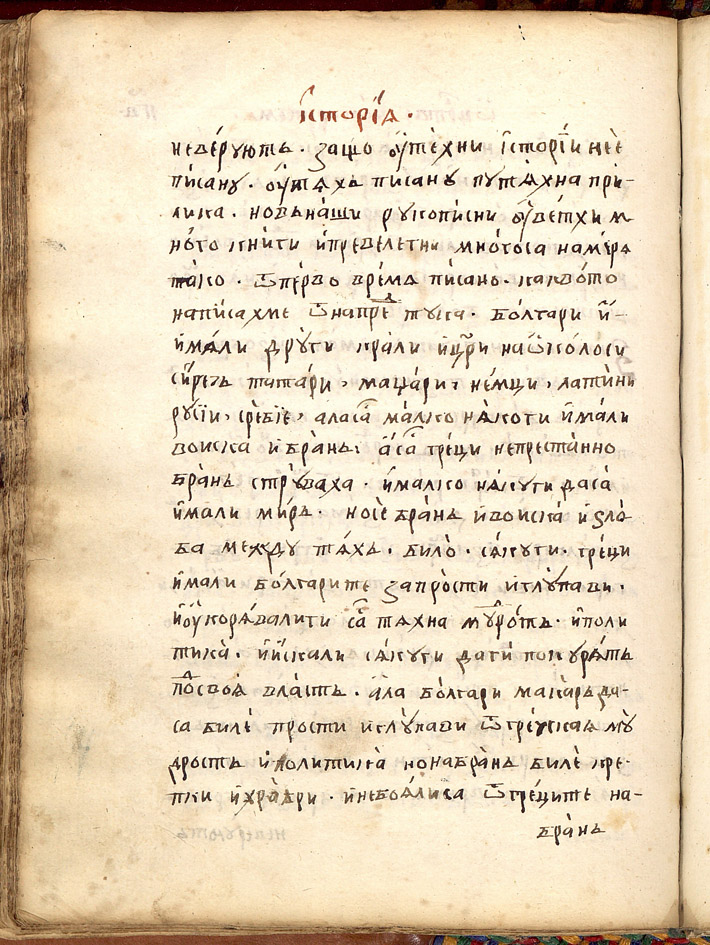 їсторїѧ ·
неве́рꙋютъ · защо оу̑те́хни їстори́и нее́
пи́санꙋ · оу̑тѧ́хъ писанꙋ пꙋтѧ́хна при́-
лика · новъна́ши рꙋкопи́сни оу̑ве́тхи м-
но́го кни́ги и҆превелегни мно́госа намерѧ
тако · ѿпе́рво вре́мѧ пи́сано · какво́то
написахме ѿнапре́д тꙋка · бо́лгари и҆й-
и҆ма́ли дрꙋ́ги крали и҆цр҃и наѡ҆ко́лоси
си́речъ татари, маџа́ри, не́мци, лати́ни
рꙋсїи, сре́бїе, аласа̀ ма́лко нѧ́коги и҆ма́ли
воиска и҆бра́нъ · а҆са̀ гре́ци непреста́нно
бра́нъ стрꙋ́ваха · и҆ма́лко нѧ́кꙋги даса̀
и҆мали ми́ръ · носѐ бра́нъ и҆воиска̀ и҆зло̀
ба междꙋ тѧ́хъ · било̀ · сѧ́кꙋги · гре́ци
и҆мали бо́лгарите за́прости и҆глꙋ́пави ·
и҆оу̑корѧ́валиги са̀ тѧхна мꙋ́дрость · и҆поли
тика · и҆и҆скали сѧ́кꙋги даги́ покꙋрѧ́тъ
подсвоѧ̀ вла́сть · а҆ла бо́лгари макаръ да-
са билѐ прости и҆глꙋ́пави ѿгре́чскаѧ мꙋ̀
дрость и҆политика̀ нонабра́нъ билѐ кре-
пки и҆хра́бри · и҆небоѧ́лиса ѿгре́ците на-
бра́нъ